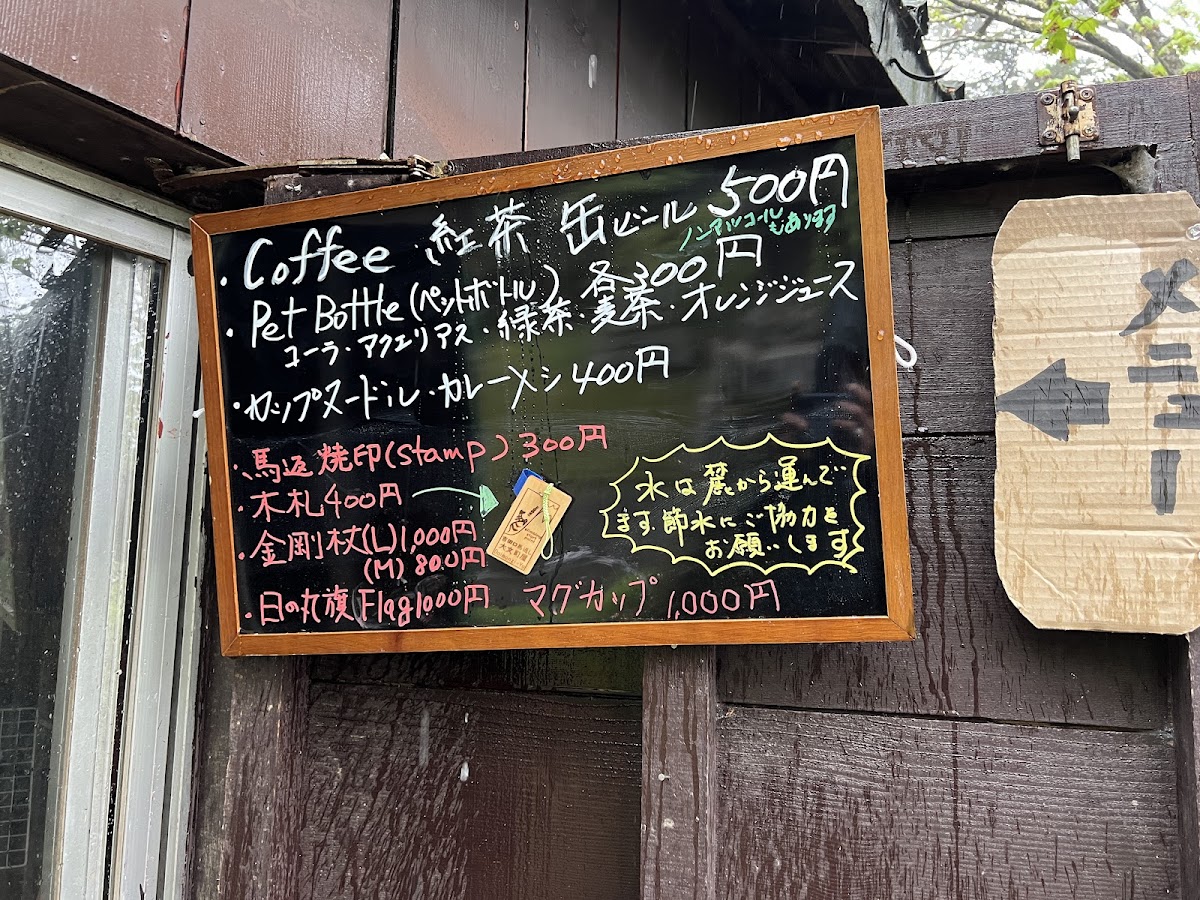 ・Coffee 紅茶 缶ビール 500円
ノンアルコールもあります
・Pet Bottle (ペットボトル) 各300円
コーラ・アクエリアス・緑茶・麦茶・オレンジジュース
・カップヌードル・カレーメシ 400円
・馬返 焼印(stamp) 300円
・木札 400円
・金剛杖(L) 1,000円
(M) 800円
・日の丸旗 Flag 1000円 マグカップ 1,000円
水は麓から運んで
ます.節水にご協力を
お願いします
メニュー